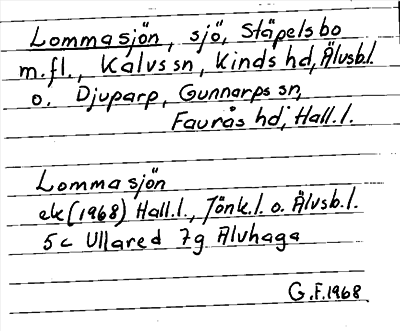 Lommasjön, sjö, Stäpelsbo
m.fl., Kalvs sn, Kinds hd, Älvsb.l.
o. Djuparp, Gunnarps sn,
Faurås hd, Hall.l.
Lommasjön
ek (1968) Hall.l., Jönk.l. o. Älvsb.l.
5c Ullared 7g Älvhaga
G.F. 1968